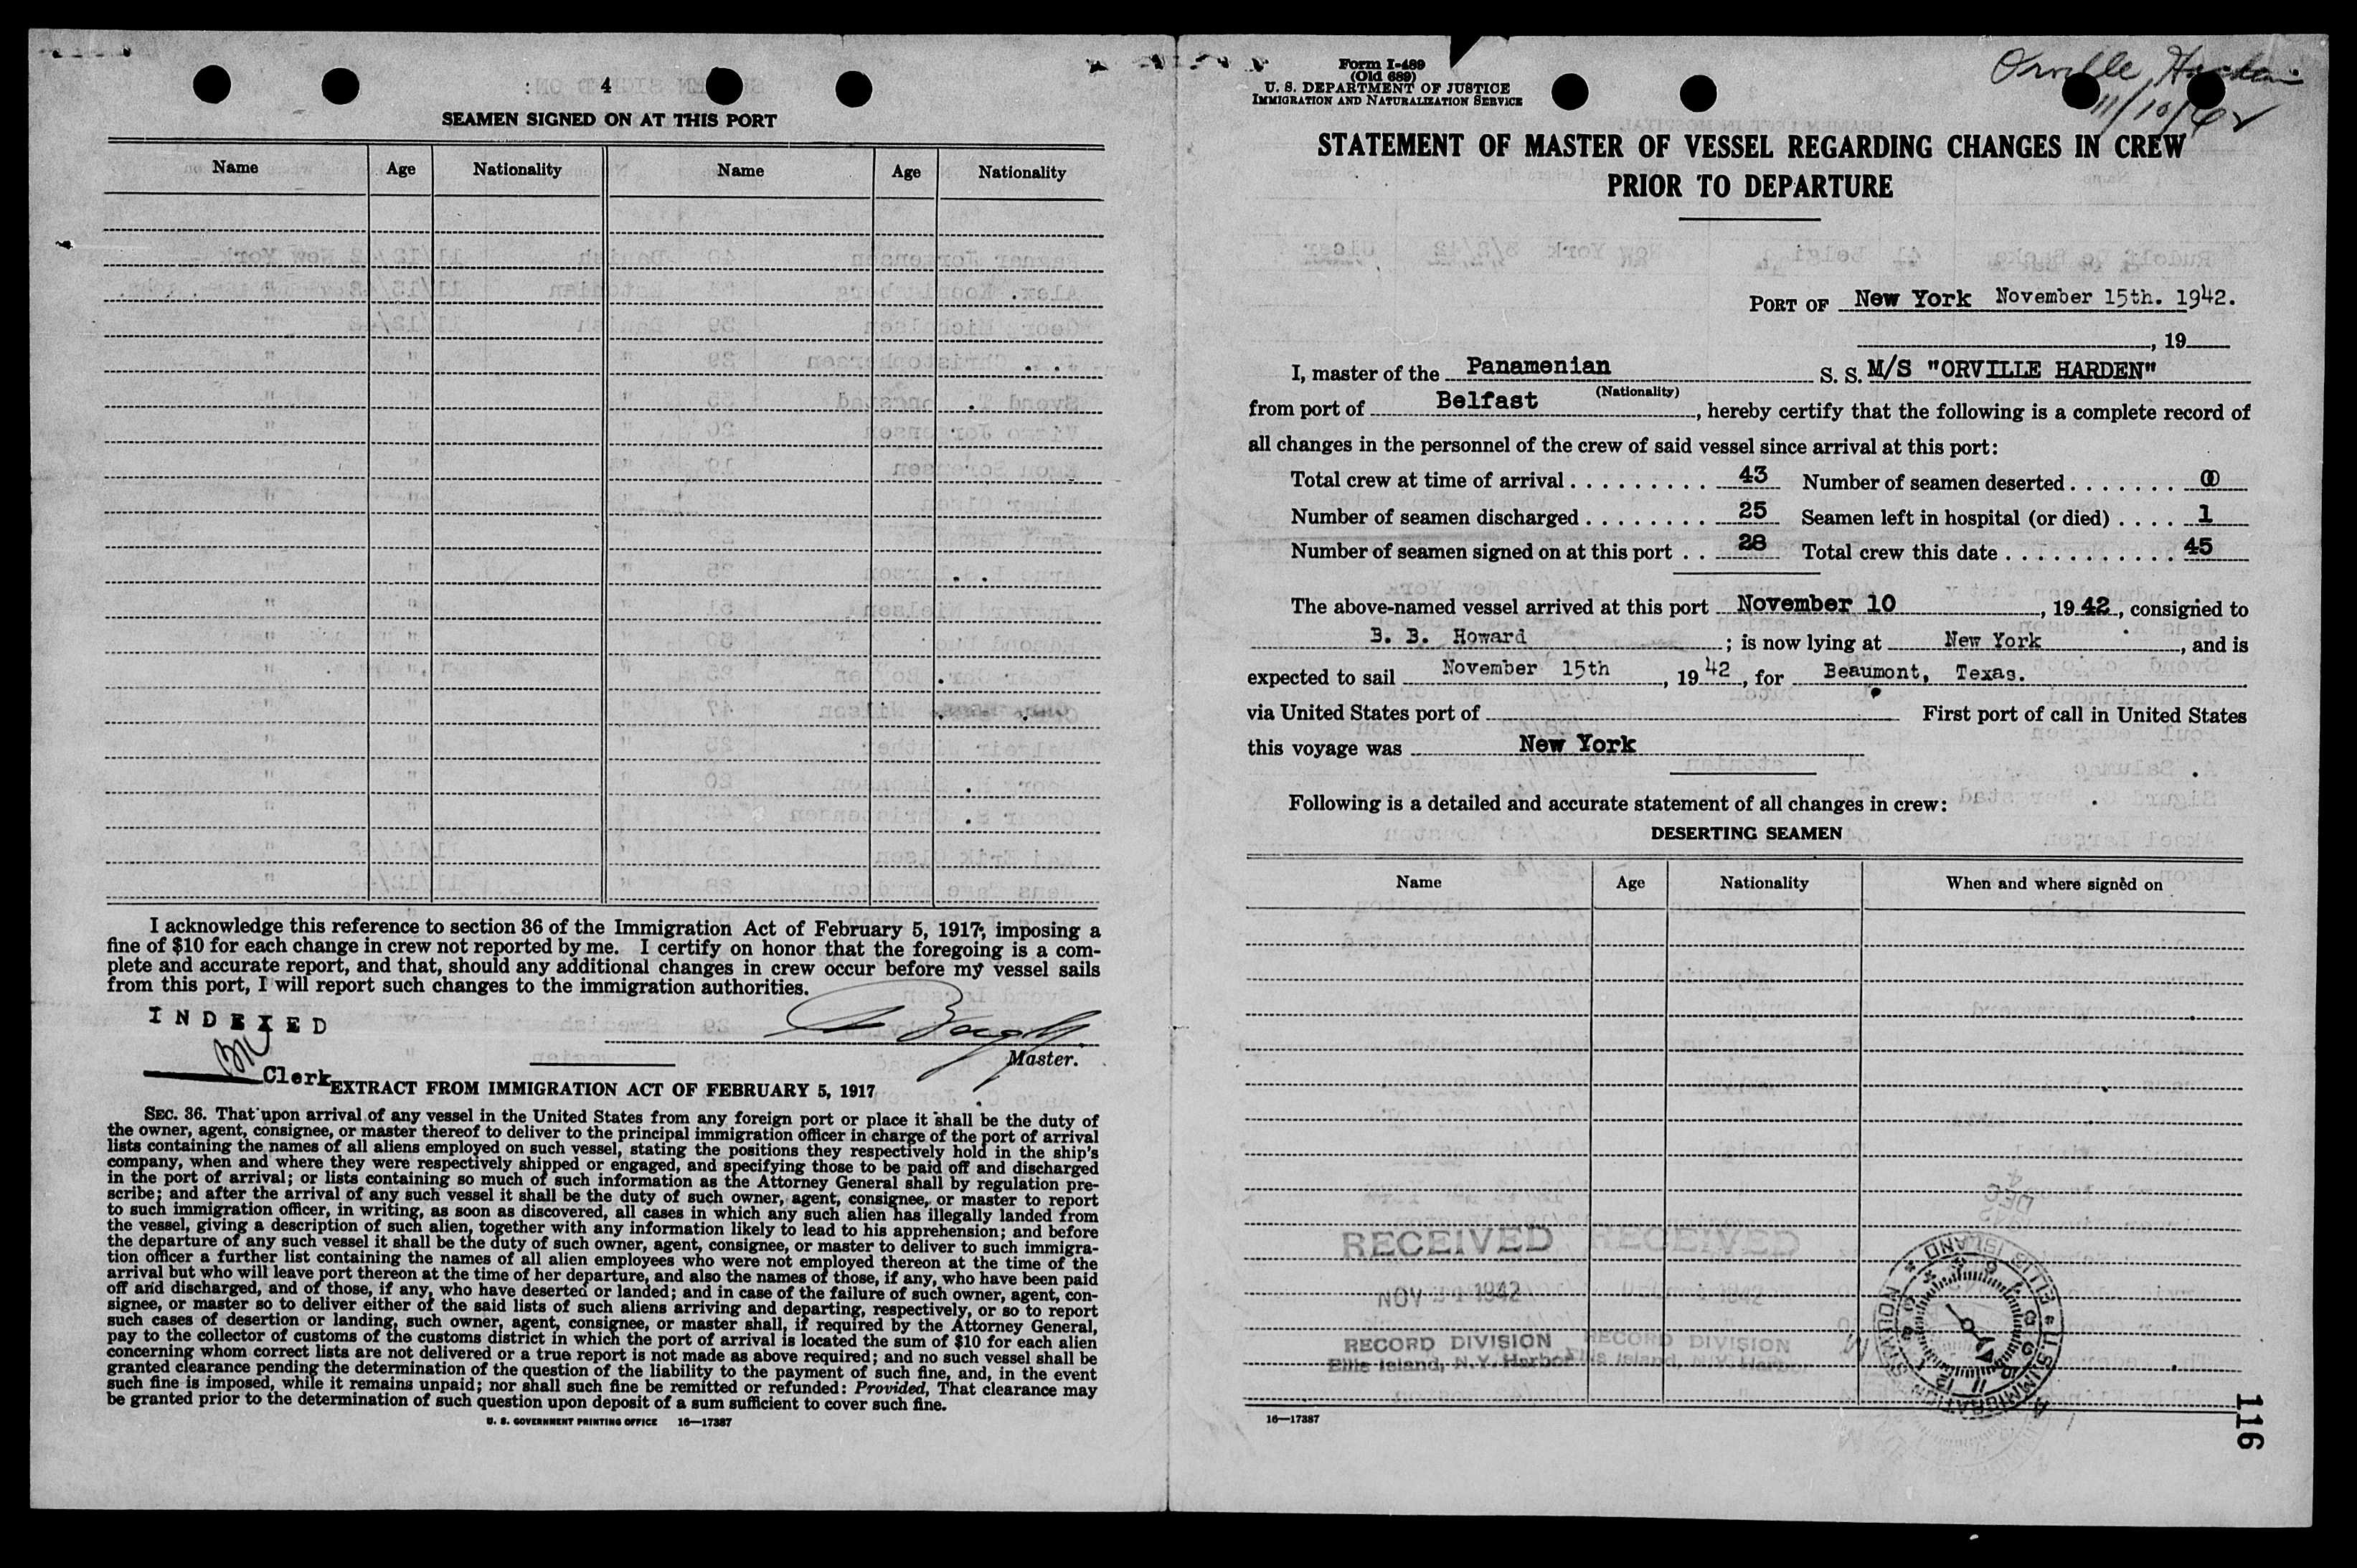 4
SEAMEN SIGNED ON AT THIS PORT
Name Age Nationality Name Age Nationality
I acknowledge this reference to section 36 of the Immigration Act of February 5, 1917, imposing a
fine of $10 for each change in crew not reported by me. I certify on honor that the foregoing is a com-
plete and accurate report, and that, should any additional changes in crew occur before my vessel sails
from this port, I will report such changes to the immigration authorities.
INDEXED
Master.
Clerk
EXTRACT FROM IMMIGRATION ACT OF FEBRUARY 5, 1917
SEC. 36. That upon arrival of any vessel in the United States from any foreign port or place it shall be the duty of
the owner, agent, consignee, or master thereof to deliver to the principal immigration officer in charge of the port of arrival
lists containing the names of all aliens employed on such vessel, stating the positions they respectively hold in the ship's
company, when and where they were respectively shipped or engaged, and specifying those to be paid off and discharged
in the port of arrival; or lists containing so much of such information as the Attorney General shall by regulation pre-
scribe; and after the arrival of any such vessel it shall be the duty of such owner, agent, consignee, or master to report
to such immigration officer, in writing, as soon as discovered, all cases in which any such alien has illegally landed from
the vessel, giving a description of such alien, together with any information likely to lead to his apprehension; and before
the departure of any such vessel it shall be the duty of such owner, agent, consignee, or master to deliver to such immigra-
tion officer a further list containing the names of all alien employees who were not employed thereon at the time of the
arrival but who will leave port thereon at the time of her departure, and also the names of those, if any, who have been paid
off and discharged, and of those, if any, who have deserted or landed; and in case of the failure of such owner, agent, con-
signee, or master so to deliver either of the said lists of such aliens arriving and departing, respectively, or so to report
such cases of desertion or landing, such owner, agent, consignee, or master shall, if required by the Attorney General,
pay to the collector of customs of the customs district in which the port of arrival is located the sum of $10 for each alien
concerning whom correct lists are not delivered or a true report is not made as above required; and no such vessel shall be
granted clearance pending the determination of the question of the liability to the payment of such fine, and, in the event
such fine is imposed, while it remains unpaid; nor shall such fine be remitted or refunded: Provided, That clearance may
be granted prior to the determination of such question upon deposit of a sum sufficient to cover such fine.
U. S. GOVERNMENT PRINTING OFFICE 16—17387
Form I-489
(Old 689)
U. S. DEPARTMENT OF JUSTICE
IMMIGRATION AND NATURALIZATION SERVICE
Orville Harden
11/10/42
STATEMENT OF MASTER OF VESSEL REGARDING CHANGES IN CREW
PRIOR TO DEPARTURE
PORT OF New York November 15th. 1942.
, 19
I, master of the Panamenian S. S. M/S "ORVILLE HARDEN"
(Nationality)
from port of Belfast, hereby certify that the following is a complete record of
all changes in the personnel of the crew of said vessel since arrival at this port:
Total crew at time of arrival 43 Number of seamen deserted 0
Number of seamen discharged 25 Seamen left in hospital (or died) 1
Number of seamen signed on at this port 28 Total crew this date 45
The above-named vessel arrived at this port November 10, 1942, consigned to
B. B. Howard; is now lying at New York, and is
expected to sail November 15th, 1942, for Beaumont, Texas.
via United States port of First port of call in United States
this voyage was New York
Following is a detailed and accurate statement of all changes in crew:
DESERTING SEAMEN
Name Age Nationality When and where signed on
DEC 4
RECEIVED RECEIVED
NOV 1942 1942
RECORD DIVISION RECORD DIVISION
Ellis Island, N.Y. Harbor Ellis Island, N.Y. Harbor
ELLIS ISLAND U.S. IMMIGRATION
16—17387
116